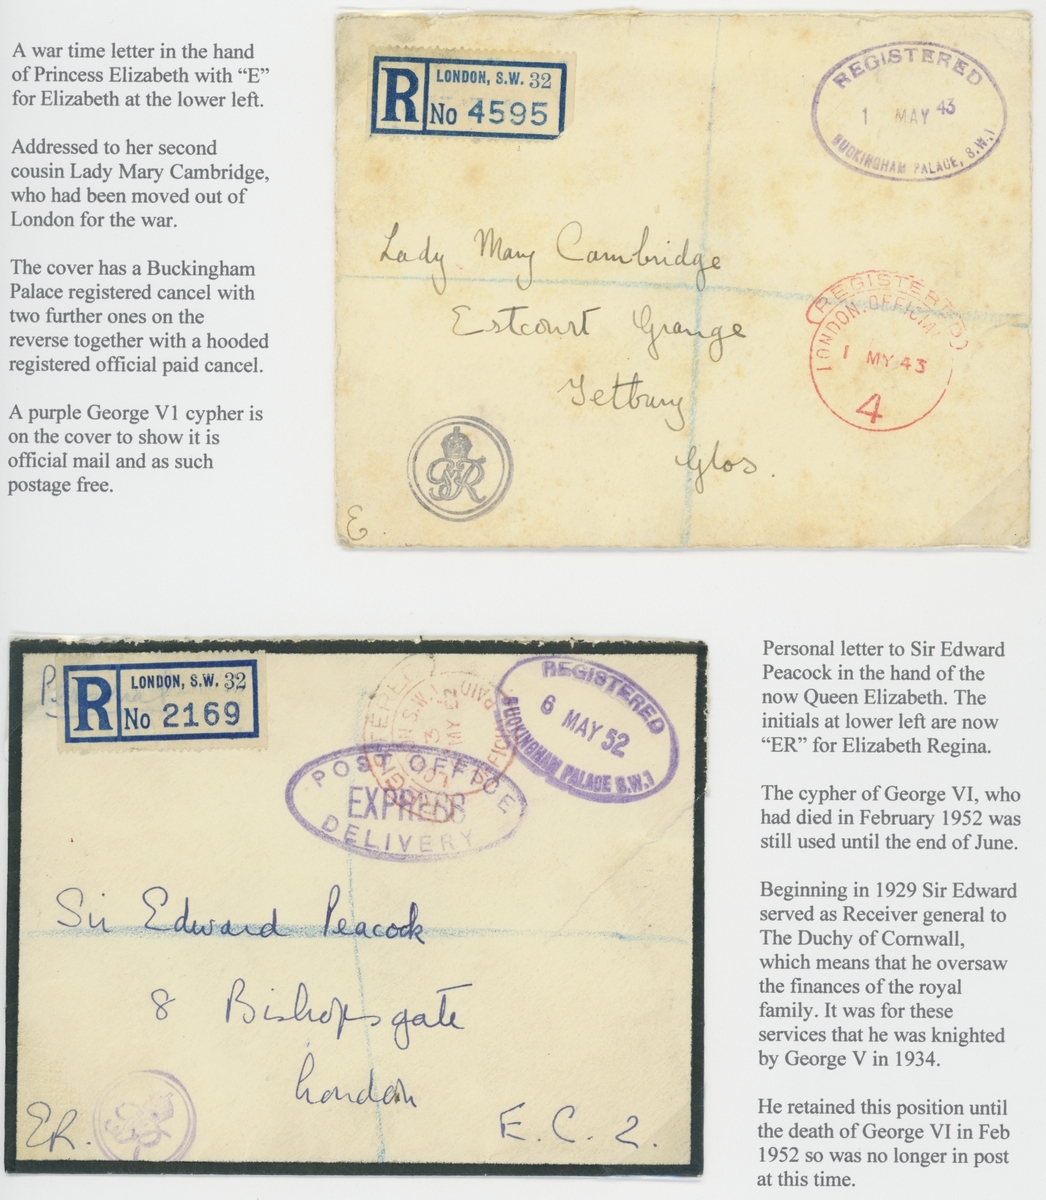 A war time letter in the hand
of Princess Elizabeth with “E”
for Elizabeth at the lower left.
Addressed to her second
cousin Lady Mary Cambridge,
who had been moved out of
London for the war.
The cover has a Buckingham
Palace registered cancel with
two further ones on the
reverse together with a hooded
registered official paid cancel.
A purple George V1 cypher is
on the cover to show it is
official mail and as such
postage free.
R
LONDON, S.W. 32
No 4595
REGISTERED
1 MAY 43
BUCKINGHAM PALACE, S.W.1
Lady Mary Cambridge
Estcourt Grange
Tetbury
Glos.
REGISTERED
LONDON. OFFICIAL
1 MY 43
4
GR
E.
R
LONDON, S.W. 32
No 2169
PAID
MY 52
REGISTERED
6 MAY 52
BUCKINGHAM PALACE S.W.1
POST OFFICE
EXPRESS
DELIVERY
Sir Edward Peacock
8 Bishopsgate
London
E.C.2.
ER.
Personal letter to Sir Edward
Peacock in the hand of the
now Queen Elizabeth. The
initials at lower left are now
“ER” for Elizabeth Regina.
The cypher of George VI, who
had died in February 1952 was
still used until the end of June.
Beginning in 1929 Sir Edward
served as Receiver general to
The Duchy of Cornwall,
which means that he oversaw
the finances of the royal
family. It was for these
services that he was knighted
by George V in 1934.
He retained this position until
the death of George VI in Feb
1952 so was no longer in post
at this time.